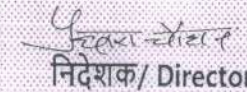 चौहान
निदेशक/ Director